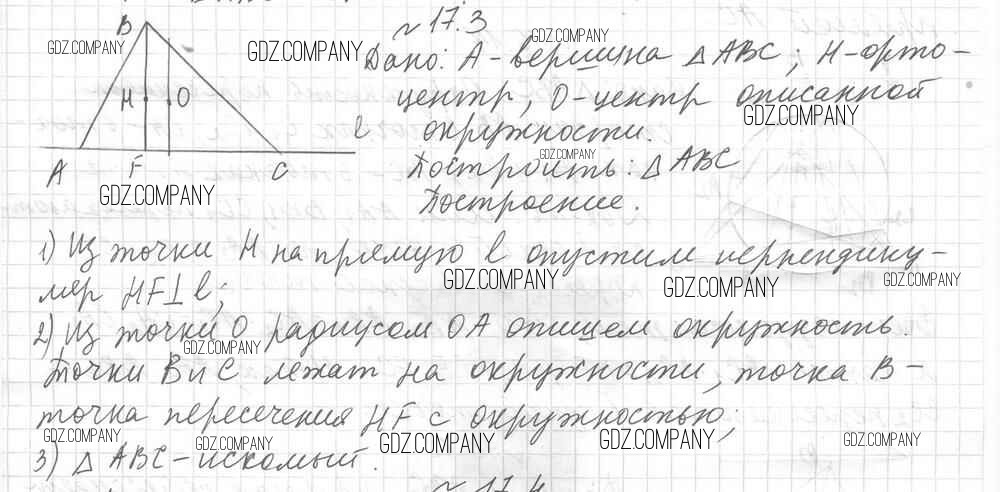 № 17.3
B
GDZ.COMPANY
GDZ.COMPANY
GDZ.COMPANY
Дано: A - вершина △ABC; H - орто-
H O
центр, O - центр описанной
GDZ.COMPANY
l
окружности.
GDZ.COMPANY
A F C
Построить: △ABC
GDZ.COMPANY
Построение.
1) Из точки H на прямую l опустим перпендику-
GDZ.COMPANY
GDZ.COMPANY
GDZ.COMPANY
ляр HF⊥l;
2) Из точки O радиусом OA опишем окружность.
GDZ.COMPANY
Точки B и C лежат на окружности, точка B -
точка пересечения HF с окружностью;
GDZ.COMPANY
GDZ.COMPANY
GDZ.COMPANY
GDZ.COMPANY
GDZ.COMPANY
3) △ ABC - искомый.
№ 17.4